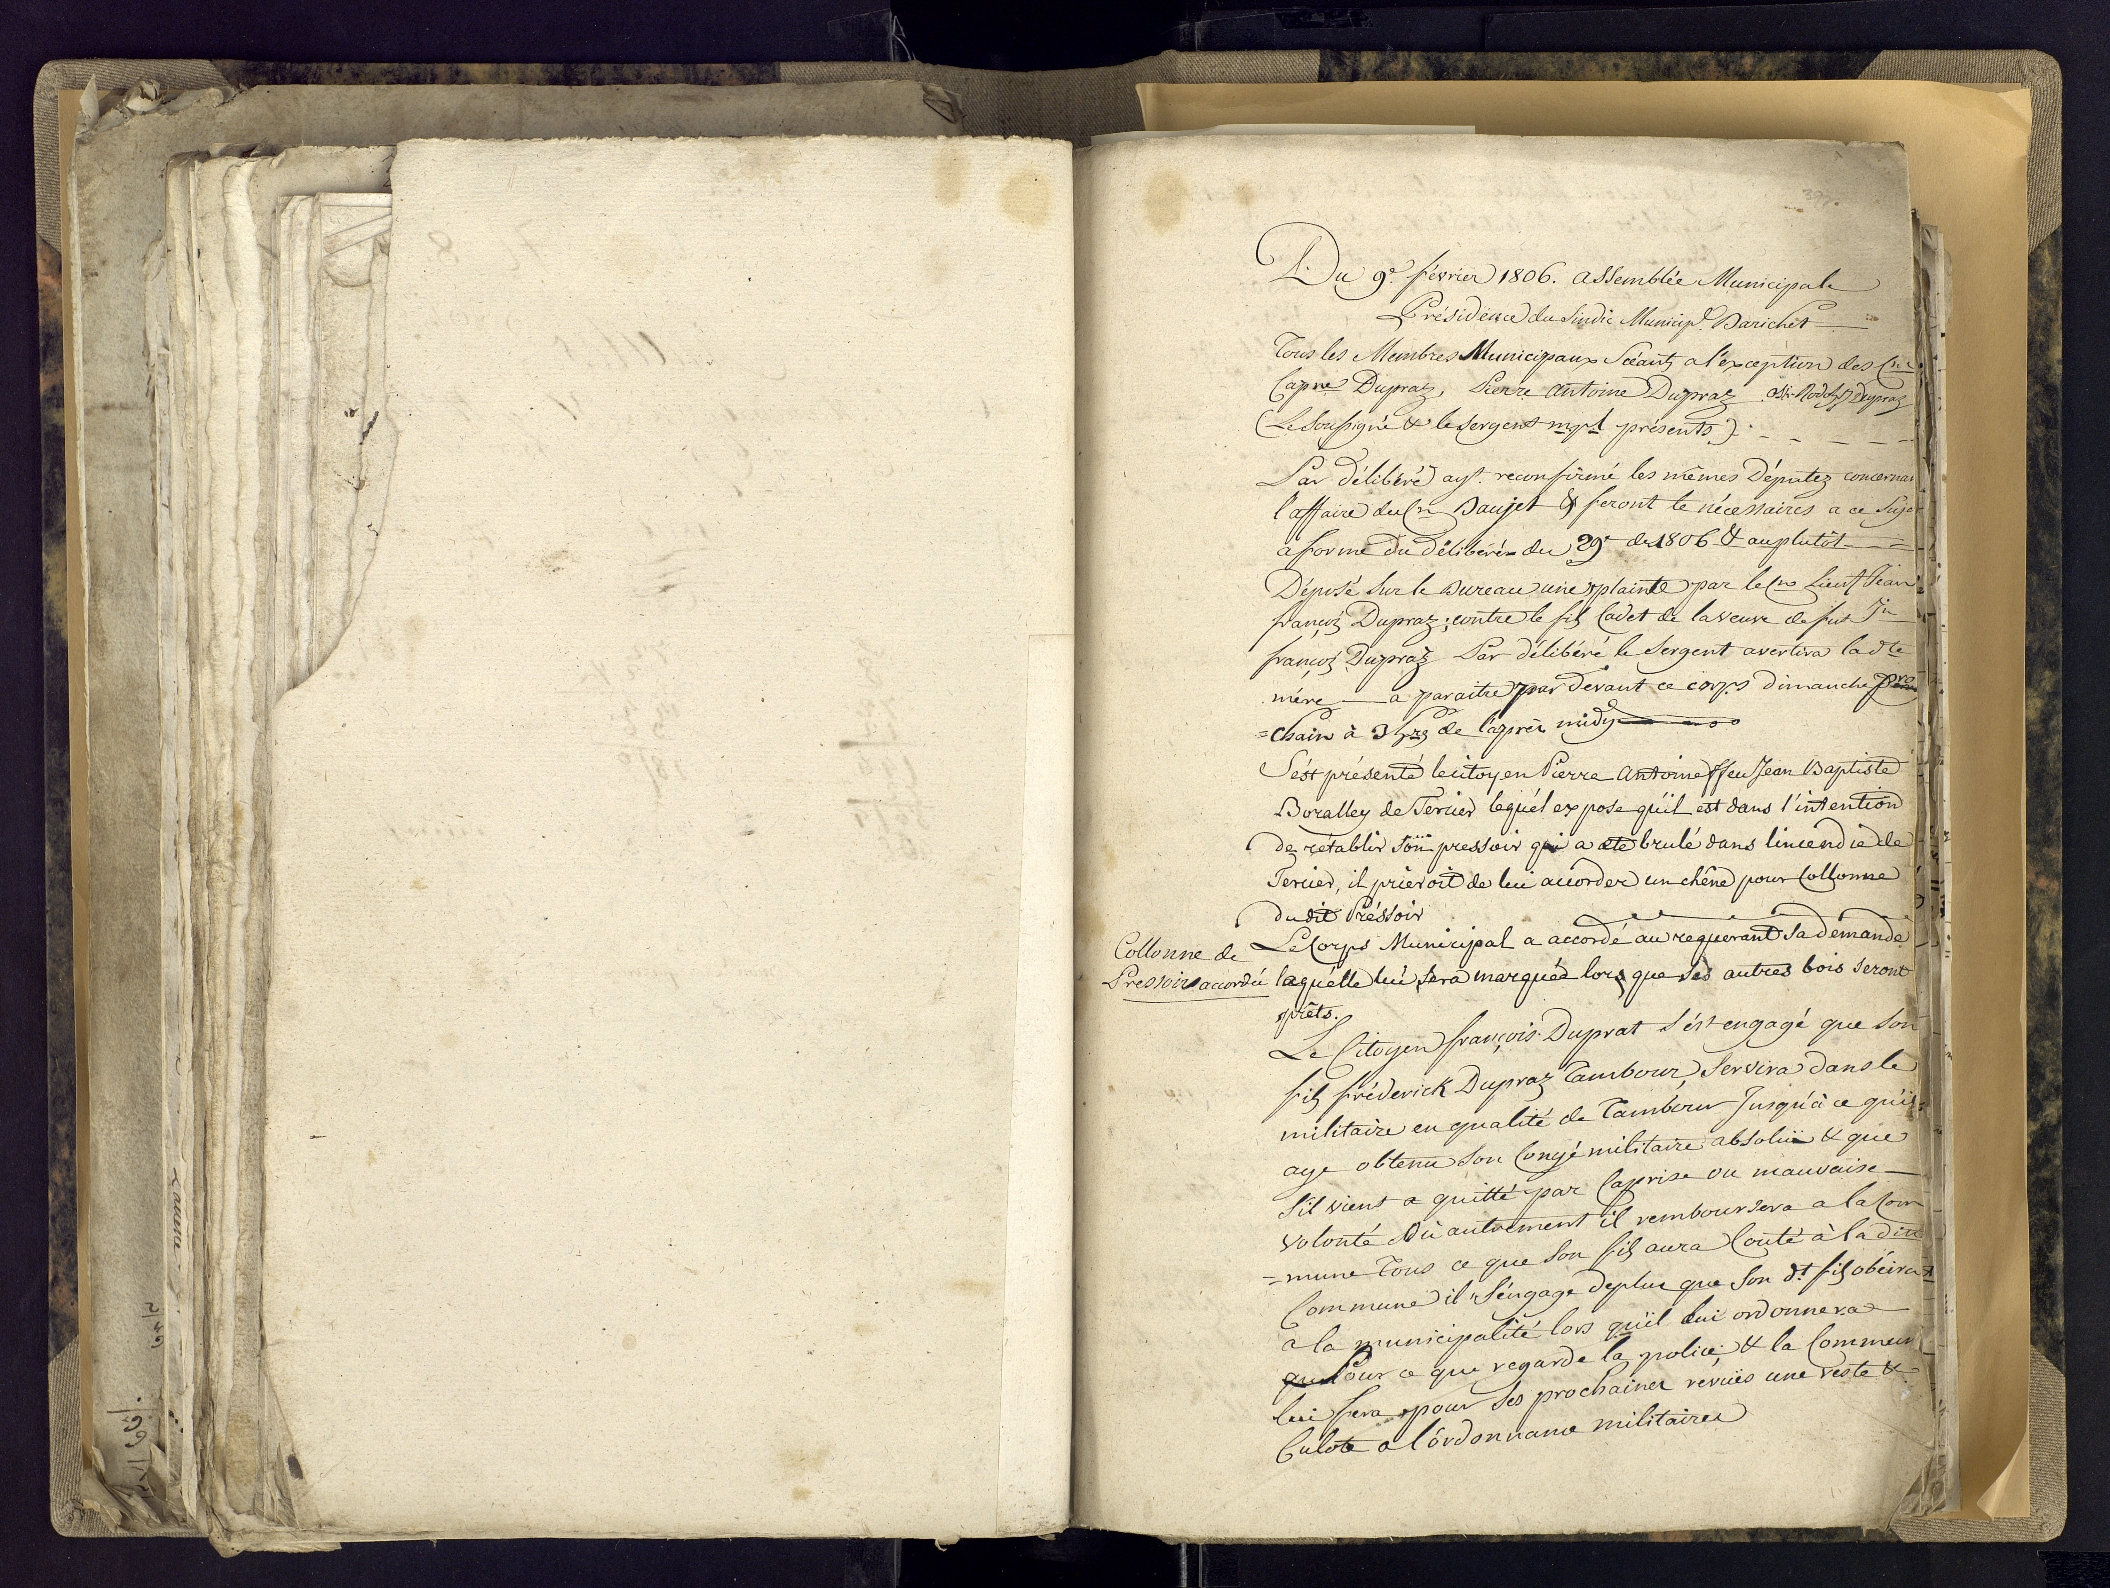 397.
Du 9e. février 1806. assemblée Municipale
Présidence du Sindic Municip.l Barichet
Tous les Membres Municipaux Séants a l'exception des Cns
Capne Dupraz, Pierre Antoine Dupraz Dupraz
(Le Soussigné & le Sergent mpl présents)
Par délibéré ayt. reconfirmé les mêmes Députez concernan
l'affaire du Cn Daujet & feront le nécessaires a ce Sujet
a forme du délibéré du 29e de 1806 & auplutôt
Déposé Sur le Bureau une plainte par le Cn Lieut Jean
françois Dupraz; contre le fils Cadet de la veuve de fut Jn
françois Dupraz Par délibéré le Sergent avertira la dte
mére a paraitre par devant ce corps dimanche pro
=chain à 3 hrs de l'après midy
S'est présenté le citoyen Pierre Antoine ffeu Jean Baptiste
Boralley de Tercier lequél expose qu'il est dans l'intention
de rétablir son pressoir qui a eté brulé dans l'incendie de
Tercier, il prieroit de lui accorder un chêne pour Collonne
du dit Préssoir
Collonne de
Pressoir accordée
Le Corps Municipal a accordé au requerant Sa demande
laquélle lui Sera marquée lors que Ses autres bois Seront
prêts.
Le Citoyen françois Duprat S'ést engagé que Son
fils fréderick Dupraz Tambour, Servira dans le
militaire en qualité de Tambour Jusqu'à ce qu'il
aye obtenu Son Congé militaire absolu & que
S'il vient a quitté par Caprise ou mauvaise
volonté Où autrement il remboursera a la Com
=mune Tous ce que Son fils aura Couté à la dite
Commune il S'éngage deplus que Son dt fils obéira
a la municipalité lors qu'il lui ordonnera
Pour ce que regarde la police, & la Commun
lui fera pour Ses prochaines revües une veste &
Culote a l'órdonnance militaires